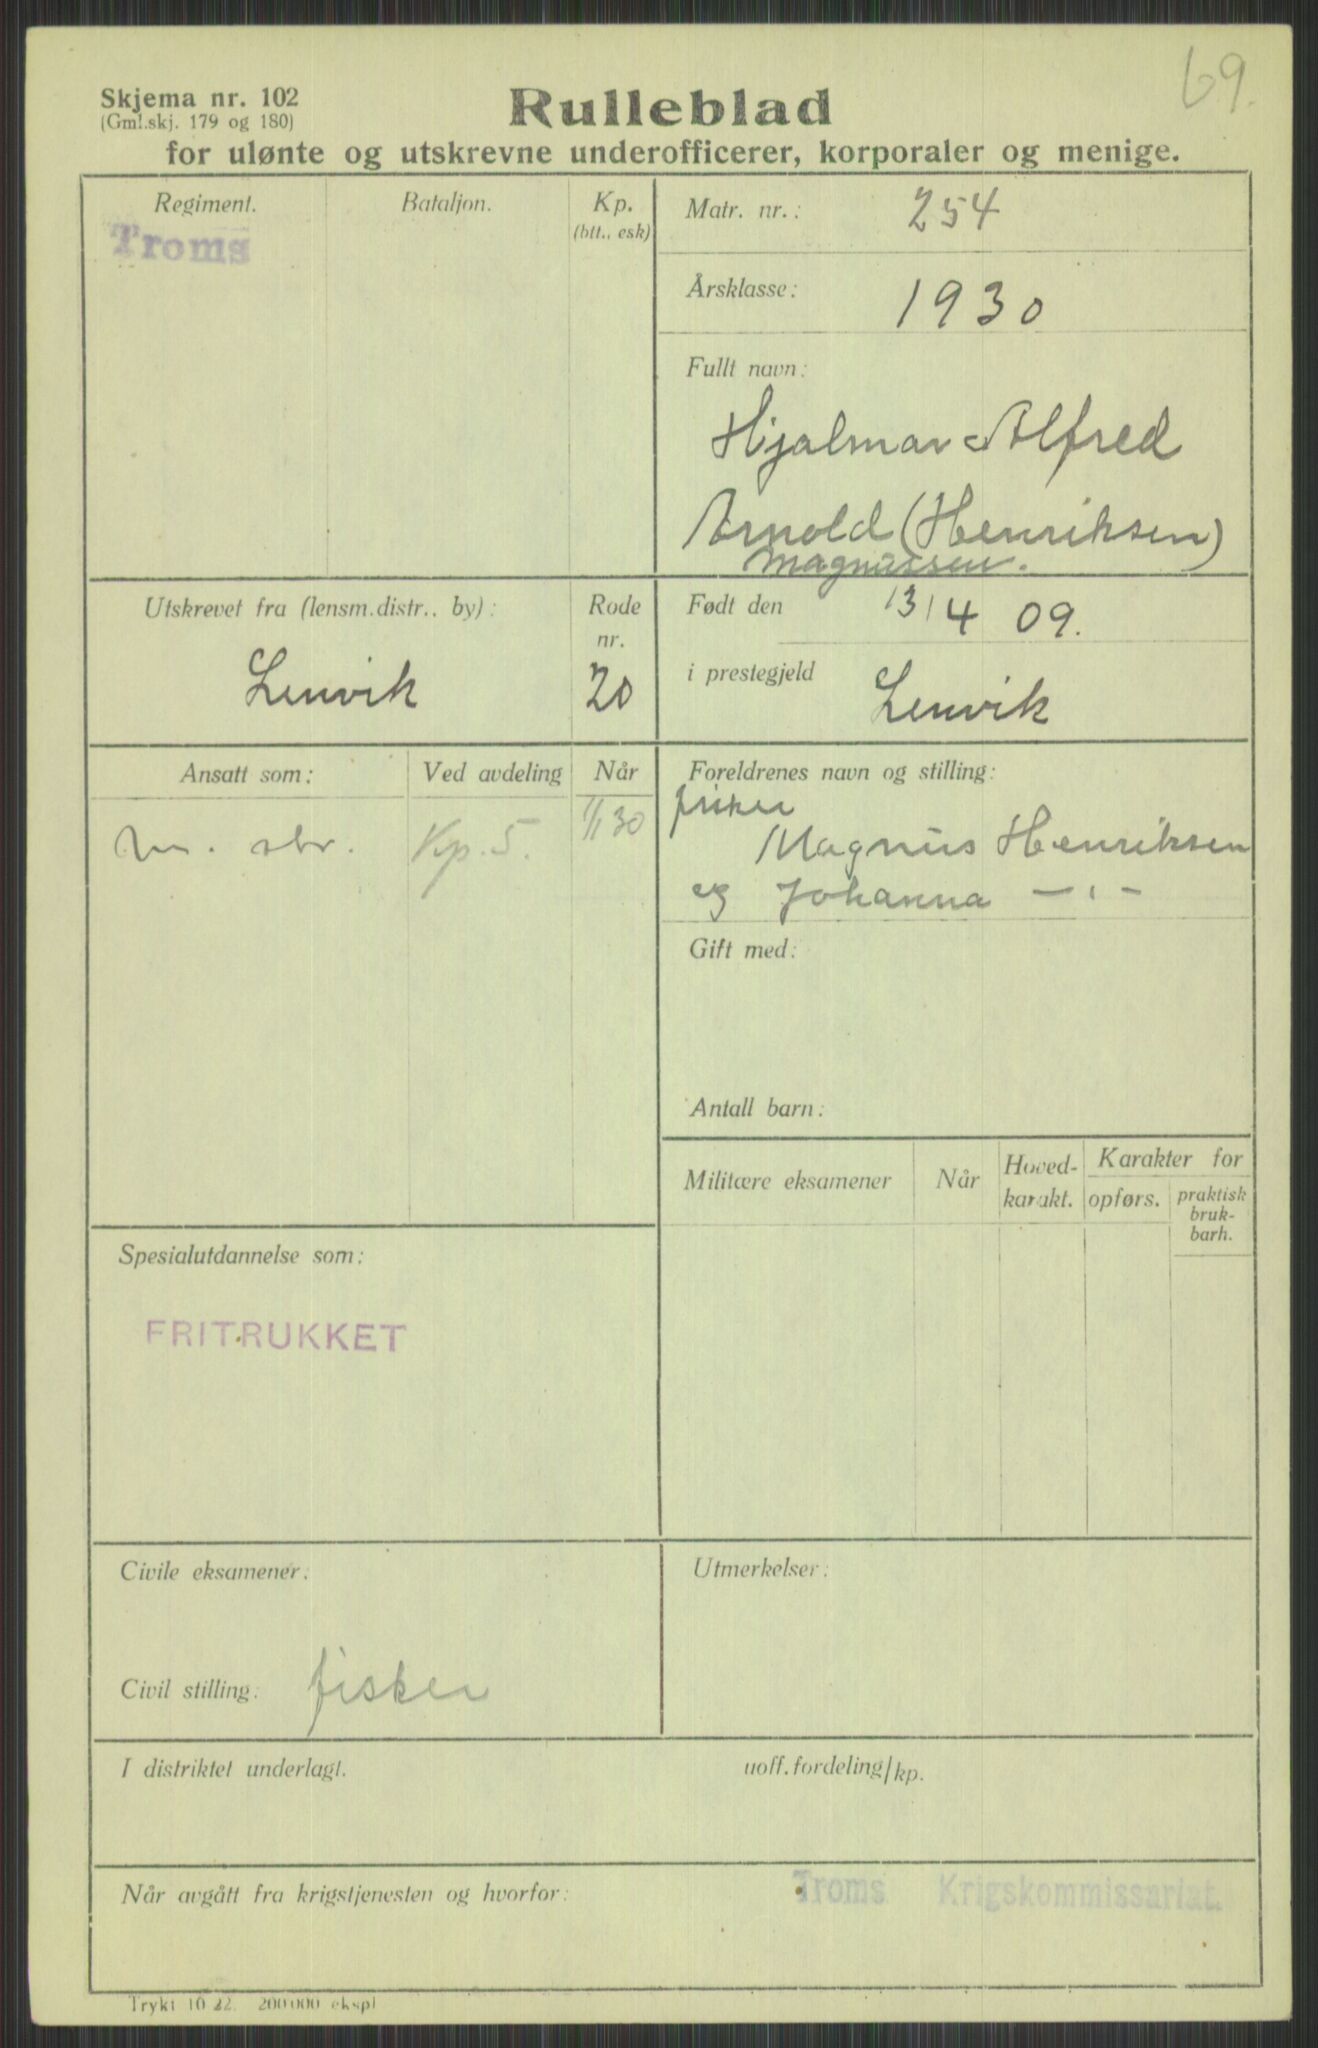 69.
Skjema nr. 102
(Gml.skj. 179 og 180)
Rulleblad
for ulønte og utskrevne underofficerer, korporaler og menige.
Regiment.
Bataljon.
Kp.
(btt., esk)
Troms
Matr. nr.: 254
Årsklasse: 1930
Fullt navn:
Hjalmar Alfred
Arnold (Henriksen)
Magnussen.
Utskrevet fra (lensm.distr., by):
Rode
nr.
Lenvik
20
Født den 13/4 09.
i prestegjeld Lenvik
Ansatt som:
Ved avdeling
Når
m. sbr.
Kp. 5.
1/1 30
Foreldrenes navn og stilling:
fisker
Magnus Henriksen
og Johanna — " —
Gift med:
Antall barn:
Militære eksamener
Når
Hoved-
karakt.
Karakter for
opførs.
praktisk
bruk-
barh.
Spesialutdannelse som:
FRITRUKKET
Civile eksamener:
Civil stilling: fisker
Utmerkelser:
I distriktet underlagt.
uoff. fordeling/kp.
Når avgått fra krigstjenesten og hvorfor:
Troms Krigskommissariat.
Trykt 10 22. 200 000 ekspl